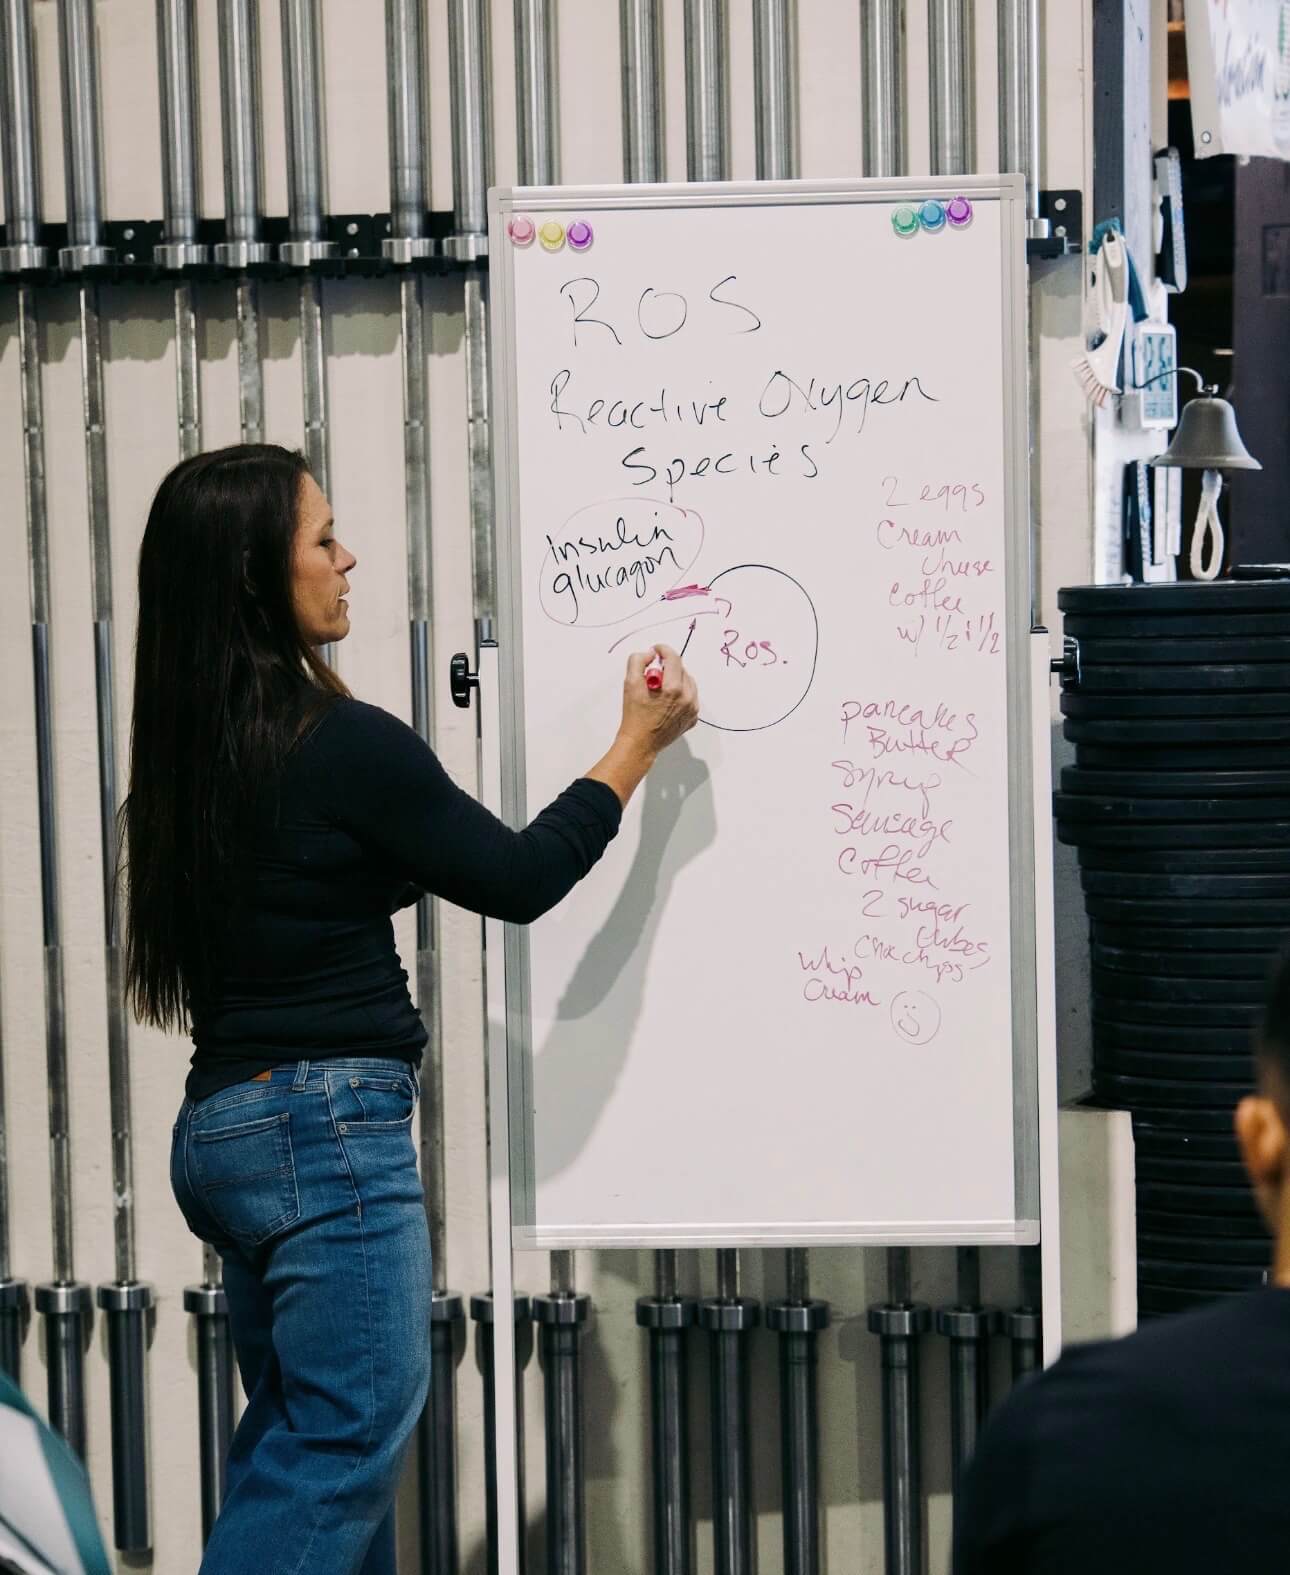 ROS
Reactive Oxygen
Species
insulin
glucagon
ROS.
2 eggs
Cream
Coffee
w/ 1/2 & 1/2
pancakes
Butter
Syrup
Sausage
Coffee
2 sugar
Cubes
Choc chips
Whip
Cream